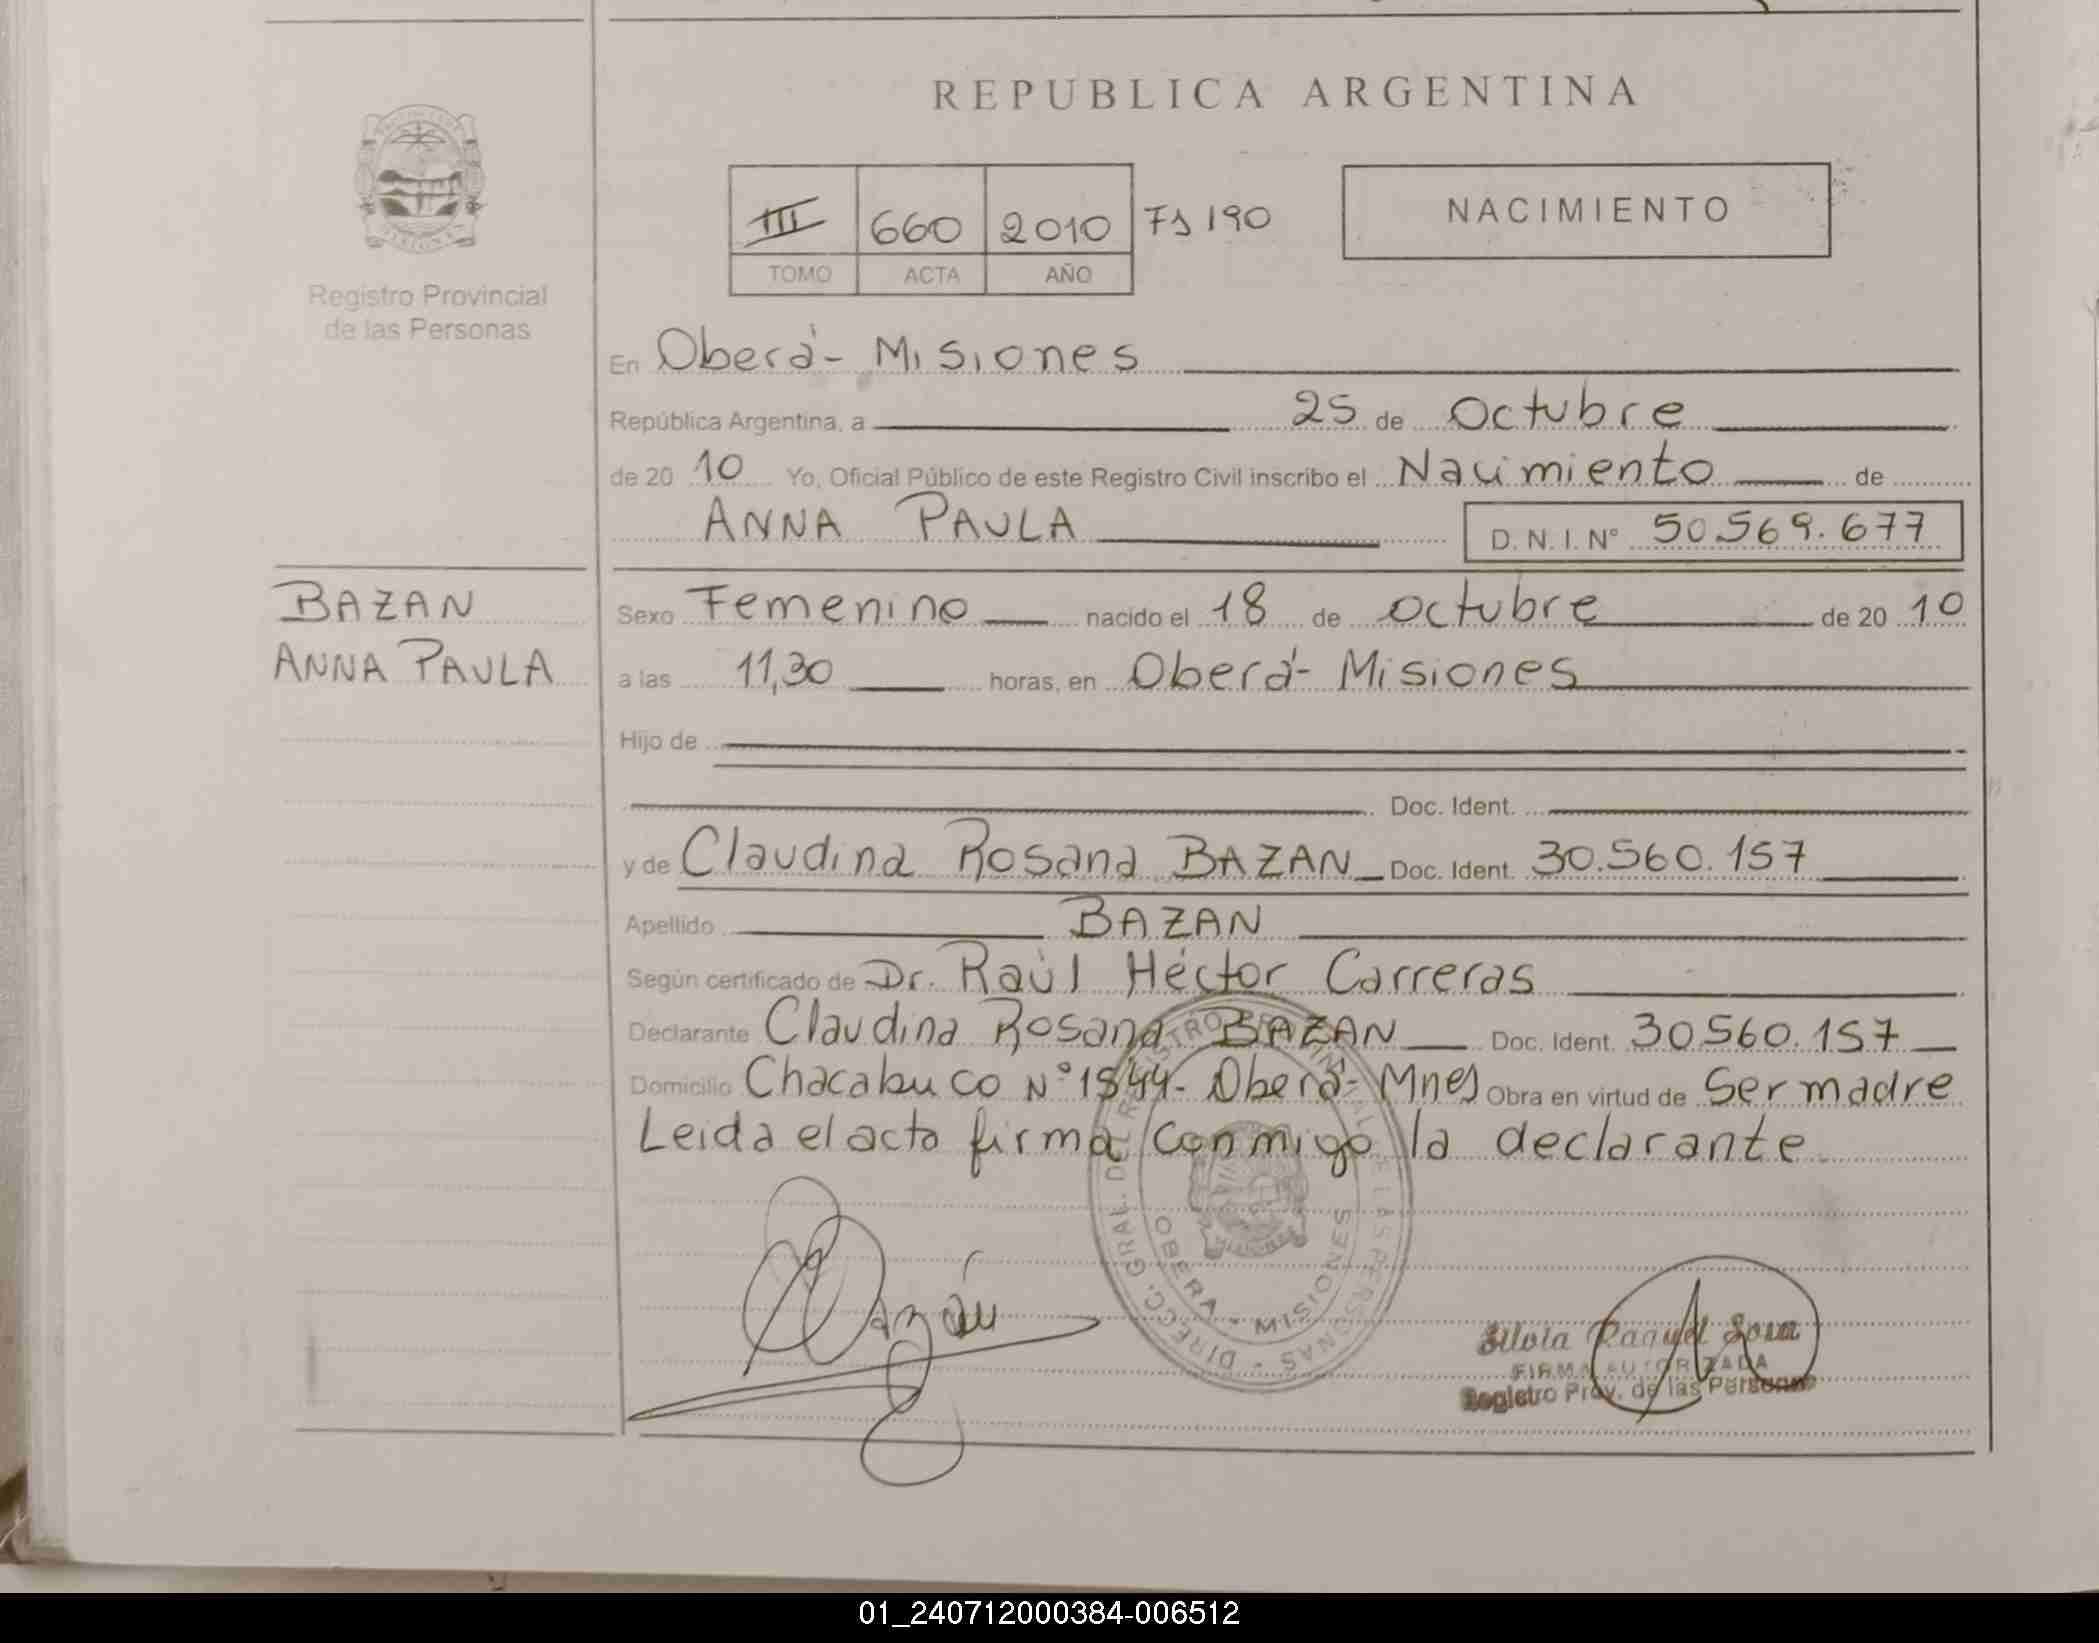 REPUBLICA ARGENTINA
III 660 2010 Fs 190
TOMO ACTA AÑO
NACIMIENTO
Registro Provincial
de las Personas
En Oberá - Misiones
República Argentina, a 25 de Octubre
de 20 10 Yo, Oficial Público de este Registro Civil inscribo el Nacimiento de
ANNA PAULA D.N.I. N° 50.569.677
BAZAN
ANNA PAULA
Sexo Femenino nacido el 18 de octubre de 20 10
a las 11,30 horas, en Oberá - Misiones
Hijo de
Doc. Ident.
y de Claudina Rosana BAZAN Doc. Ident. 30.560.157
Apellido BAZAN
Según certificado de Dr. Raúl Héctor Carreras
Declarante Claudina Rosana BAZAN Doc. Ident. 30.560.157
Domicilio Chacabuco N° 1844 - Oberá - Mnes Obra en virtud de Ser madre
Leida el acta firma conmigo la declarante
DIRECC. GRAL. DEL REGISTRO PROVINCIAL DE LAS PERSONAS
OBERA - MISIONES
Silvia Raquel Sosa
FIRMA AUTORIZADA
Registro Prov. de las Personas
01_240712000384-006512